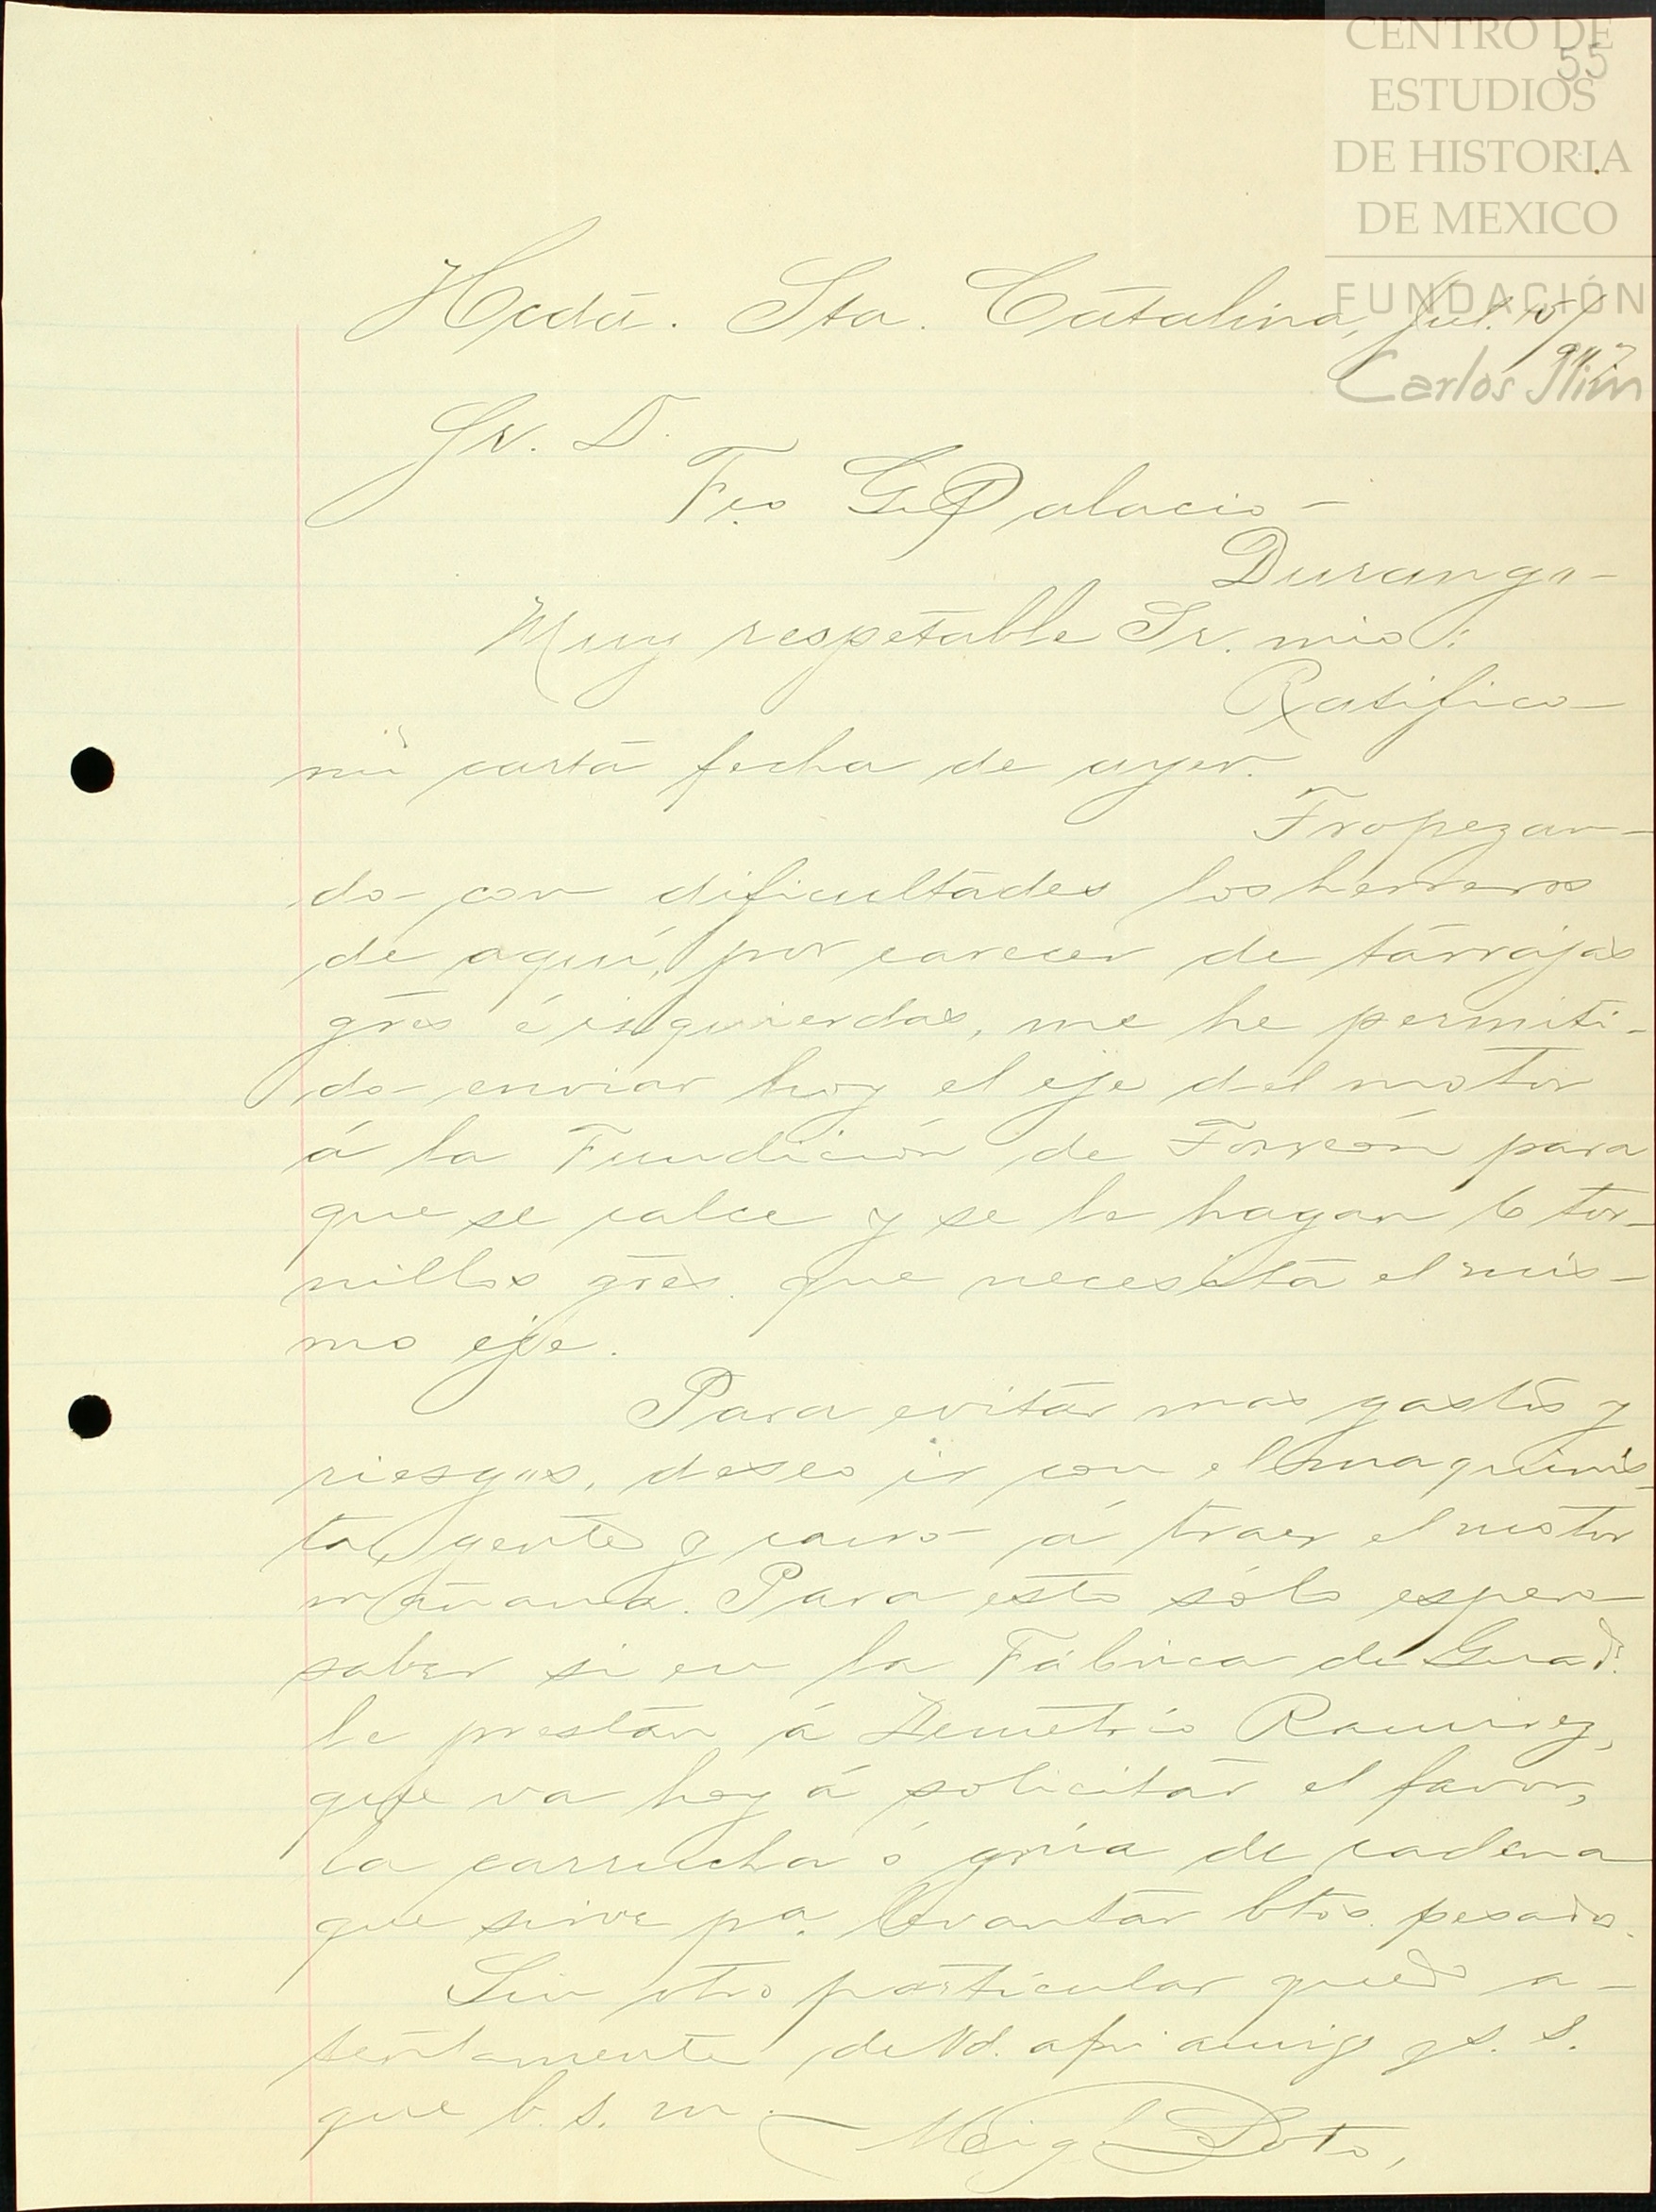 CENTRO DE
55
ESTUDIOS
DE HISTORIA
DE MEXICO
FUNDACIÓN
Carlos Slim
Hcda. Sta. Catalina, Jul.
Sr. D.
Fco G. Palacio-
Durango-
Muy respetable Sr. mio:
Ratifico-
mi carta fecha de ayer.
Tropezan-
do con dificultades los herreros
de aquí, por carecer de tarrajas
grs é isquierdas, me he permiti-
do enviar hoy el eje del motor
á la Fundición de Torreón para
que se calce y se le hagan 6 tor-
nillos grs. que necesita el mis-
mo eje.
Para evitar mas gastos y
riesgos, deseo ir con el maquinis-
ta, gente y carro á traer el motor
mañana. Para esto sólo espero
saber si en la Fábrica de Guade.
le prestan á Demetrio Ramirez,
que va hoy á solicitar el favor,
la carrucha ó grúa de cadena
que sirve pa. levantar btos. pesados.
Sin otro particular quedo a-
tentamente de Vd. afmo amigo y s. s.
que b. s. m.
Migl Soto,